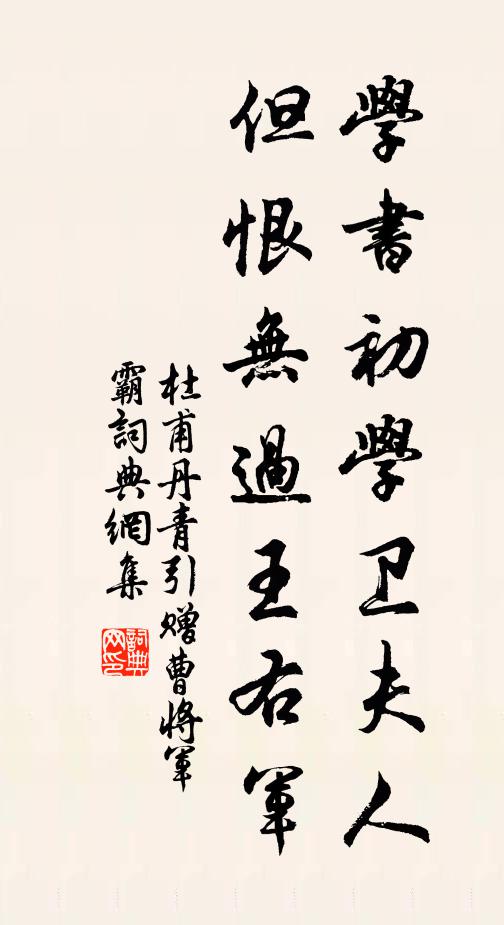 學書初學卫夫人
但恨無過王右軍
杜甫丹青引贈曹將軍
霸詞典網集
詞典网印